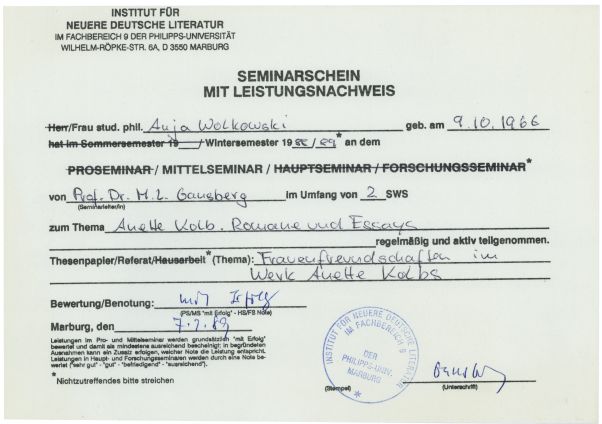 INSTITUT FÜR
NEUERE DEUTSCHE LITERATUR
IM FACHBEREICH 9 DER PHILIPPS-UNIVERSITÄT
WILHELM-RÖPKE-STR. 6A, D 3550 MARBURG
SEMINARSCHEIN
MIT LEISTUNGSNACHWEIS
Herr/Frau stud. phil. Anja Wolkowski geb. am 9.10.1966
hat im Sommersemester 19 / Wintersemester 1988/89* an dem
PROSEMINAR / MITTELSEMINAR / HAUPTSEMINAR / FORSCHUNGSSEMINAR*
von Prof. Dr. M. L. Gansberg im Umfang von 2 SWS
(Seminarleiter/in)
zum Thema Anette Kolb. Romane und Essays
regelmäßig und aktiv teilgenommen.
Thesenpapier/Referat/Hausarbeit* (Thema): Frauenfreundschaften im
Werk Anette Kolbs
Bewertung/Benotung: mit Erfolg
(PS/MS "mit Erfolg" - HS/FS Note)
Marburg, den 7.7.89
Leistungen im Pro- und Mittelseminar werden grundsätzlich "mit Erfolg"
bewertet und damit als mindestens ausreichend bescheinigt; in begründeten
Ausnahmen kann ein Zusatz erfolgen, welcher Note die Leistung entspricht.
Leistungen in Haupt- und Forschungsseminaren werden durch eine Note be-
wertet ("sehr gut" - "gut" - "befriedigend" - "ausreichend").
* Nichtzutreffendes bitte streichen
INSTITUT FÜR NEUERE DEUTSCHE LITERATUR
IM FACHBEREICH 9
DER
PHILIPPS-UNIV.
MARBURG
(Stempel)
(Unterschrift)